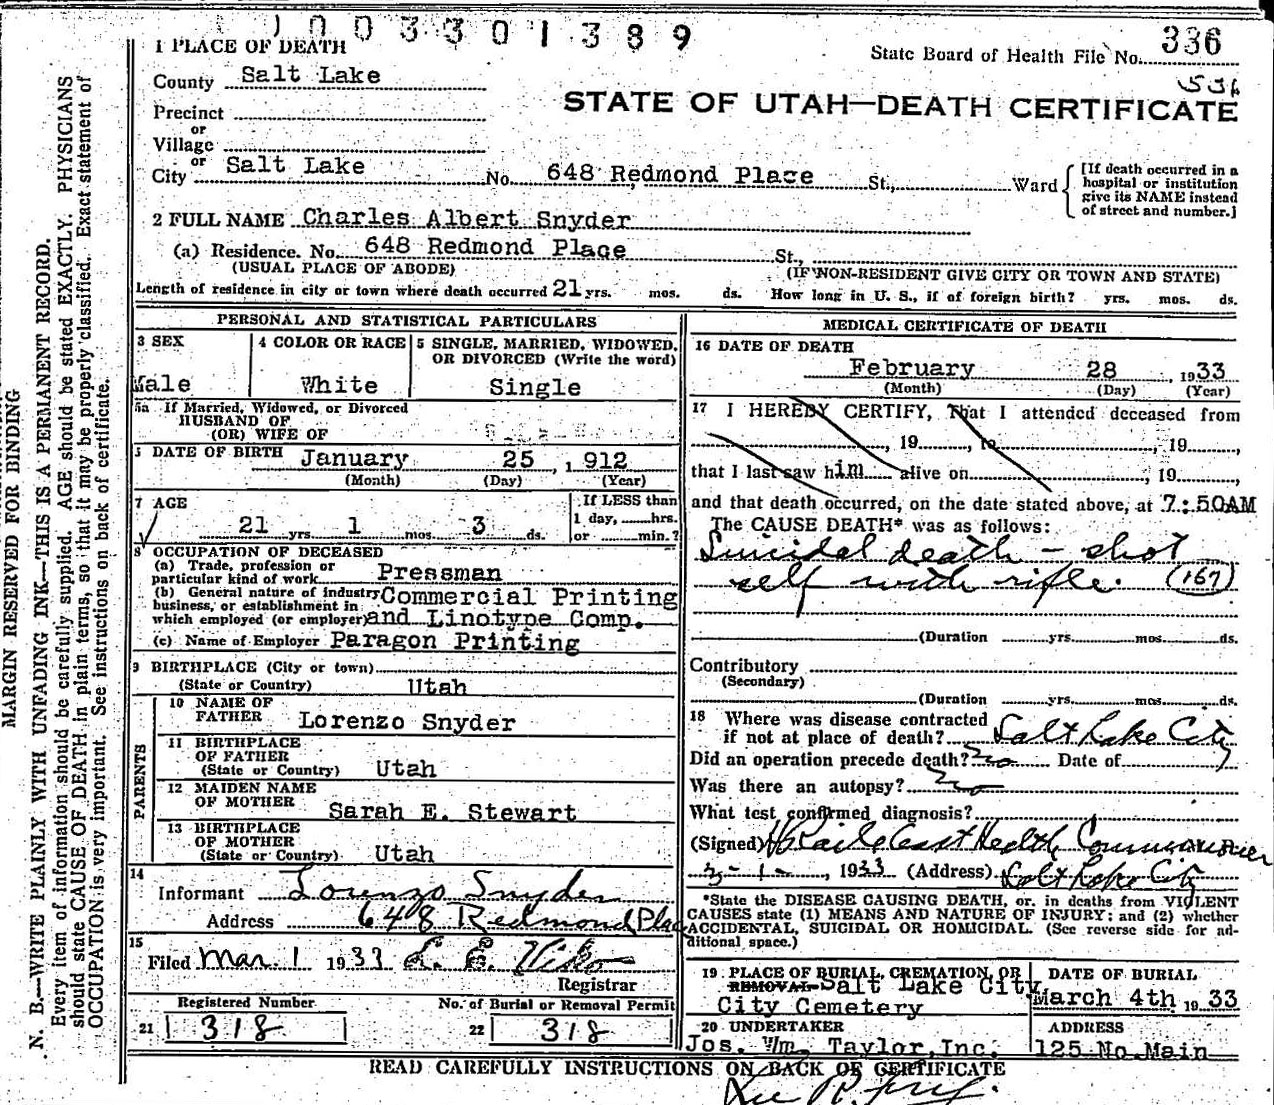 1003301389
1 PLACE OF DEATH
State Board of Health File No. 336
County Salt Lake
536
STATE OF UTAH—DEATH CERTIFICATE
Precinct
or
Village
or
City Salt Lake No. 648 Redmond Place St., Ward
[If death occurred in a
hospital or institution
give its NAME instead
of street and number.]
2 FULL NAME Charles Albert Snyder
(a) Residence. No. 648 Redmond Place St.,
(USUAL PLACE OF ABODE) (IF NON-RESIDENT GIVE CITY OR TOWN AND STATE)
Length of residence in city or town where death occurred 21 yrs. mos. ds. How long in U. S., if of foreign birth? yrs. mos. ds.
PERSONAL AND STATISTICAL PARTICULARS
3 SEX
Male
4 COLOR OR RACE
White
5 SINGLE, MARRIED, WIDOWED,
OR DIVORCED (Write the word)
Single
5a If Married, Widowed, or Divorced
HUSBAND OF
(OR) WIFE OF
DATE OF BIRTH January 25, 1912
(Month) (Day) (Year)
7 AGE
21 yrs. 1 mos. 3 ds.
If LESS than
1 day, hrs.
or min.?
8 OCCUPATION OF DECEASED
(a) Trade, profession or
particular kind of work Pressman
(b) General nature of industry,
business, or establishment in
which employed (or employer) Commercial Printing
and Linotype Comp.
(c) Name of Employer Paragon Printing
9 BIRTHPLACE (City or town)
(State or Country) Utah
PARENTS
10 NAME OF
FATHER Lorenzo Snyder
11 BIRTHPLACE
OF FATHER
(State or Country) Utah
12 MAIDEN NAME
OF MOTHER Sarah E. Stewart
13 BIRTHPLACE
OF MOTHER
(State or Country) Utah
14
Informant Lorenzo Snyder
Address 648 Redmond Place
15
Filed Mar. 1 1933 L. E. Viko
Registrar
Registered Number
21 318
No. of Burial or Removal Permit
22 318
MEDICAL CERTIFICATE OF DEATH
16 DATE OF DEATH
February 28, 1933
(Month) (Day) (Year)
17 I HEREBY CERTIFY, That I attended deceased from
, 19 , to , 19 ,
that I last saw him alive on , 19 ,
and that death occurred, on the date stated above, at 7:50AM
The CAUSE DEATH* was as follows:
Suicidal death - shot
self with rifle. (167)
(Duration yrs. mos. ds.
Contributory
(Secondary)
(Duration yrs. mos. ds.
18 Where was disease contracted
if not at place of death? Salt Lake City
Did an operation precede death? No Date of
Was there an autopsy? No
What test confirmed diagnosis?
(Signed) Health Commissioner
3-1-, 1933 (Address) Salt Lake City
*State the DISEASE CAUSING DEATH, or, in deaths from VIOLENT
CAUSES state (1) MEANS AND NATURE OF INJURY: and (2) whether
ACCIDENTAL, SUICIDAL OR HOMICIDAL. (See reverse side for ad-
ditional space.)
19 PLACE OF BURIAL, CREMATION, OR
REMOVAL Salt Lake City
City Cemetery
DATE OF BURIAL
March 4th 1933
20 UNDERTAKER
Jos. Wm. Taylor, Inc.
ADDRESS
125 No. Main
READ CAREFULLY INSTRUCTIONS ON BACK OF CERTIFICATE
MARGIN RESERVED FOR BINDING
N. B.—WRITE PLAINLY WITH UNFADING INK—THIS IS A PERMANENT RECORD.
Every item of information should be carefully supplied. AGE should be stated EXACTLY. PHYSICIANS
should state CAUSE OF DEATH in plain terms, so that it may be properly classified. Exact statement of
OCCUPATION is very important. See instructions on back of certificate.